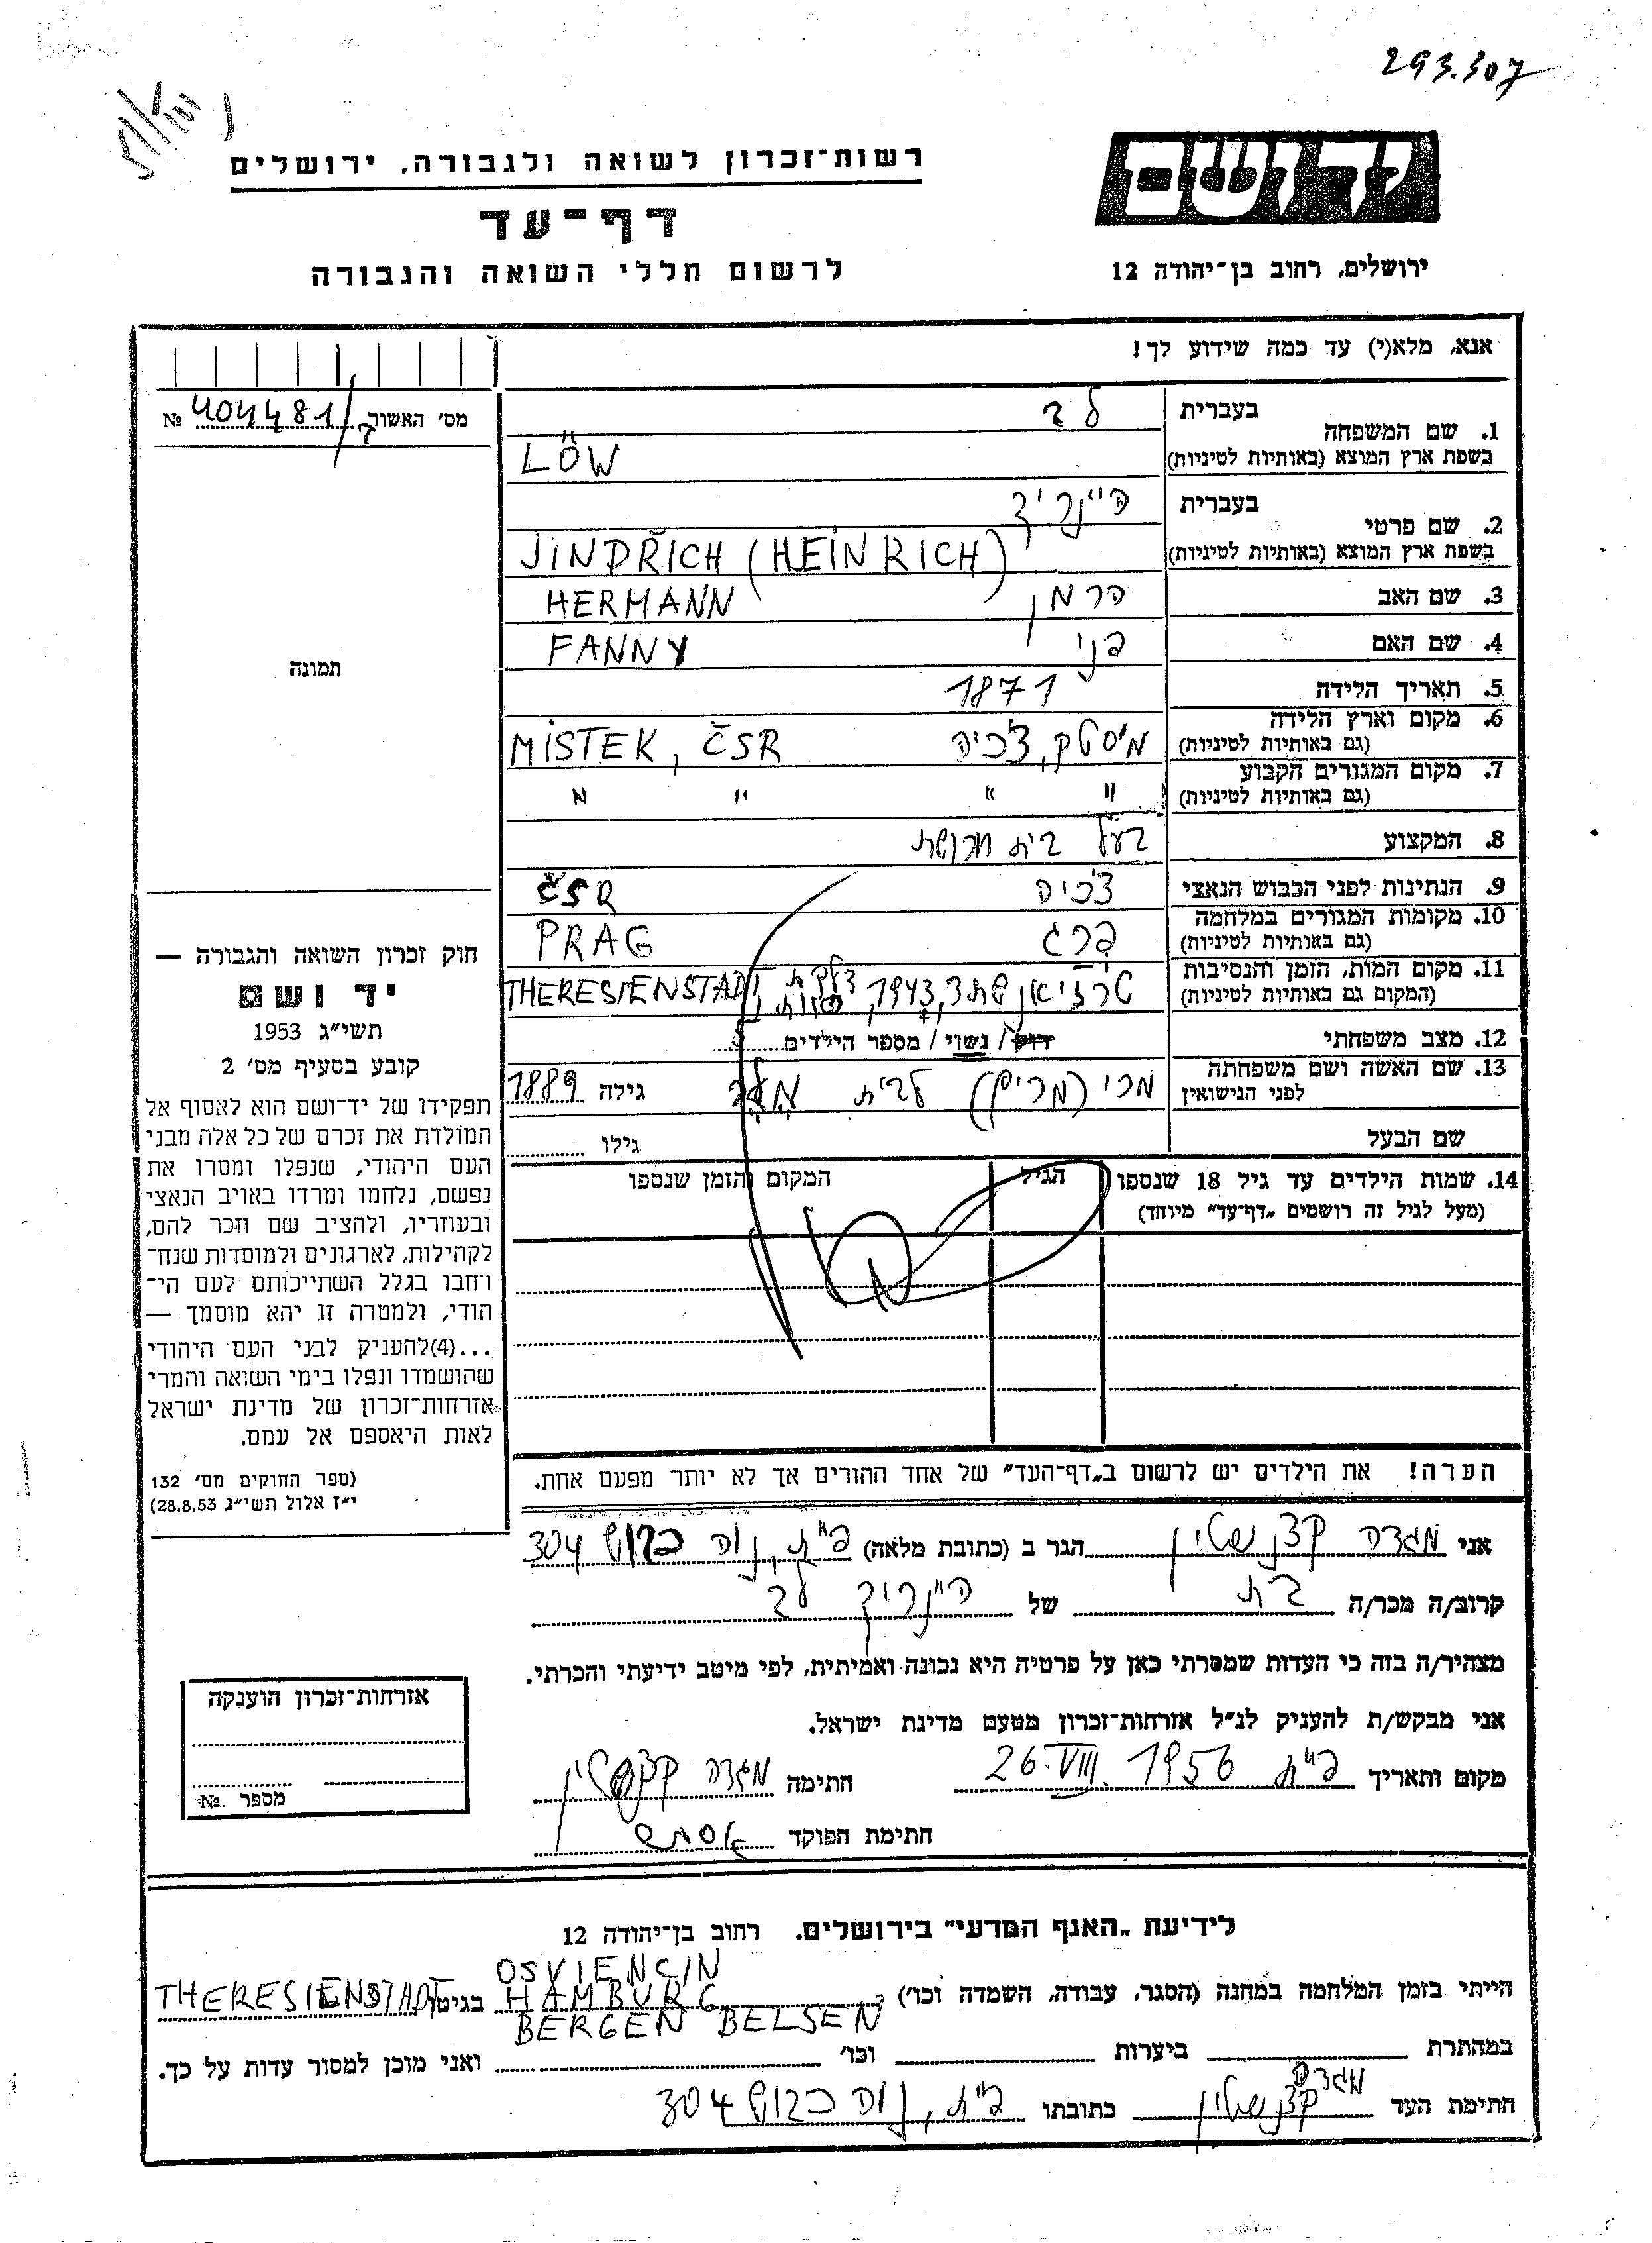 293.307
יד ושם
רשות־זכרון לשואה ולגבורה, ירושלים
דף־עד
לרשום חללי השואה והגבורה
ירושלים, רחוב בן־יהודה 12
אנא, מלא(י) עד כמה שידוע לך!
מס׳ האשור 404481 №
1. שם המשפחה בעברית לב
בשפת ארץ המוצא (באותיות לטיניות) LÖW
2. שם פרטי בעברית היינריך
בשפת ארץ המוצא (באותיות לטיניות) JINDŘICH (HEINRICH)
3. שם האב הרמן HERMANN
4. שם האם פני FANNY
5. תאריך הלידה 1871
6. מקום וארץ הלידה מיסטק, צ׳כיה MISTEK, ČSR
(גם באותיות לטיניות)
7. מקום המגורים הקבוע " " " "
(גם באותיות לטיניות)
8. המקצוע בעל בית חרושת
9. הנתינות לפני הכבוש הנאצי צ׳כיה ČSR
10. מקומות המגורים במלחמה פרג PRAG
(גם באותיות לטיניות)
11. מקום המות, הזמן והנסיבות טרזיאנשתדט, 1943, דלקת THERESIENSTADT
(המקום גם באותיות לטיניות)
12. מצב משפחתי רווק / נשוי / מספר הילדים
13. שם האשה ושם משפחתה מרי (מרים) לבית גילה 1889
לפני הנישואין
שם הבעל גילו
14. שמות הילדים עד גיל 18 שנספו הגיל המקום והזמן שנספו
(מעל לגיל זה רושמים „דף־עד" מיוחד)
הערה! את הילדים יש לרשום ב„דף־העד" של אחד ההורים אך לא יותר מפעם אחת.
תמונה
חוק זכרון השואה והגבורה —
יד ושם
תשי״ג 1953
קובע בסעיף מס׳ 2
תפקידו של יד־ושם הוא לאסוף אל
המולדת את זכרם של כל אלה מבני
העם היהודי, שנפלו ומסרו את
נפשם, נלחמו ומרדו באויב הנאצי
ובעוזריו, ולהציב שם וזכר להם,
לקהילות, לארגונים ולמוסדות שנח־
רבו בגלל השתייכותם לעם הי־
הודי, ולמטרה זו יהא מוסמך —
...(4)להעניק לבני העם היהודי
שהושמדו ונפלו בימי השואה והמרי
אזרחות־זכרון של מדינת ישראל
לאות היאספם אל עמם.
(ספר החוקים מס׳ 132
י״ז אלול תשי״ג 28.8.53)
אני מגדה קצנשטין הגר ב (כתובת מלאה) פ״ת, נוה כרוש 304
קרוב/ה מכר/ה בת של היינריך לב
מצהיר/ה בזה כי העדות שמסרתי כאן על פרטיה היא נכונה ואמיתית, לפי מיטב ידיעתי והכרתי.
אני מבקש/ת להעניק לנ״ל אזרחות־זכרון מטעם מדינת ישראל.
מקום ותאריך פ״ת 26.VIII.1956 חתימה מגדה קצנשטין
חתימת הפוקד
אזרחות־זכרון הוענקה
מספר №
לידיעת „האגף המדעי" בירושלים. רחוב בן־יהודה 12
הייתי בזמן המלחמה במחנה (הסגר, עבודה, השמדה וכו׳) OSVIENCIN HAMBURG BERGEN BELSEN בגיטו THERESIENSTADT
במחתרת ביערות וכו׳ ואני מוכן למסור עדות על כך.
חתימת העד מגדה קצנשטין כתובתו פ״ת, נוה כרוש 304